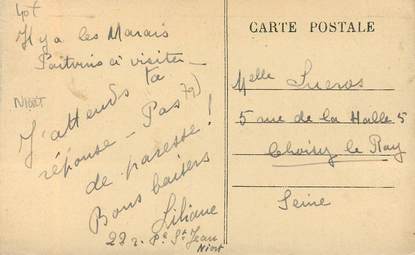 CARTE POSTALE
Il y a les Marais
Poitvins à visiter
NIORT
79)
J'attends ta
réponse - Pas
de paresse !
Bons baisers
Liliane
22 r. Pe St Jean
Niort
Melle Sueros
5 rue de la Halle 5
Choisy le Roy
Seine